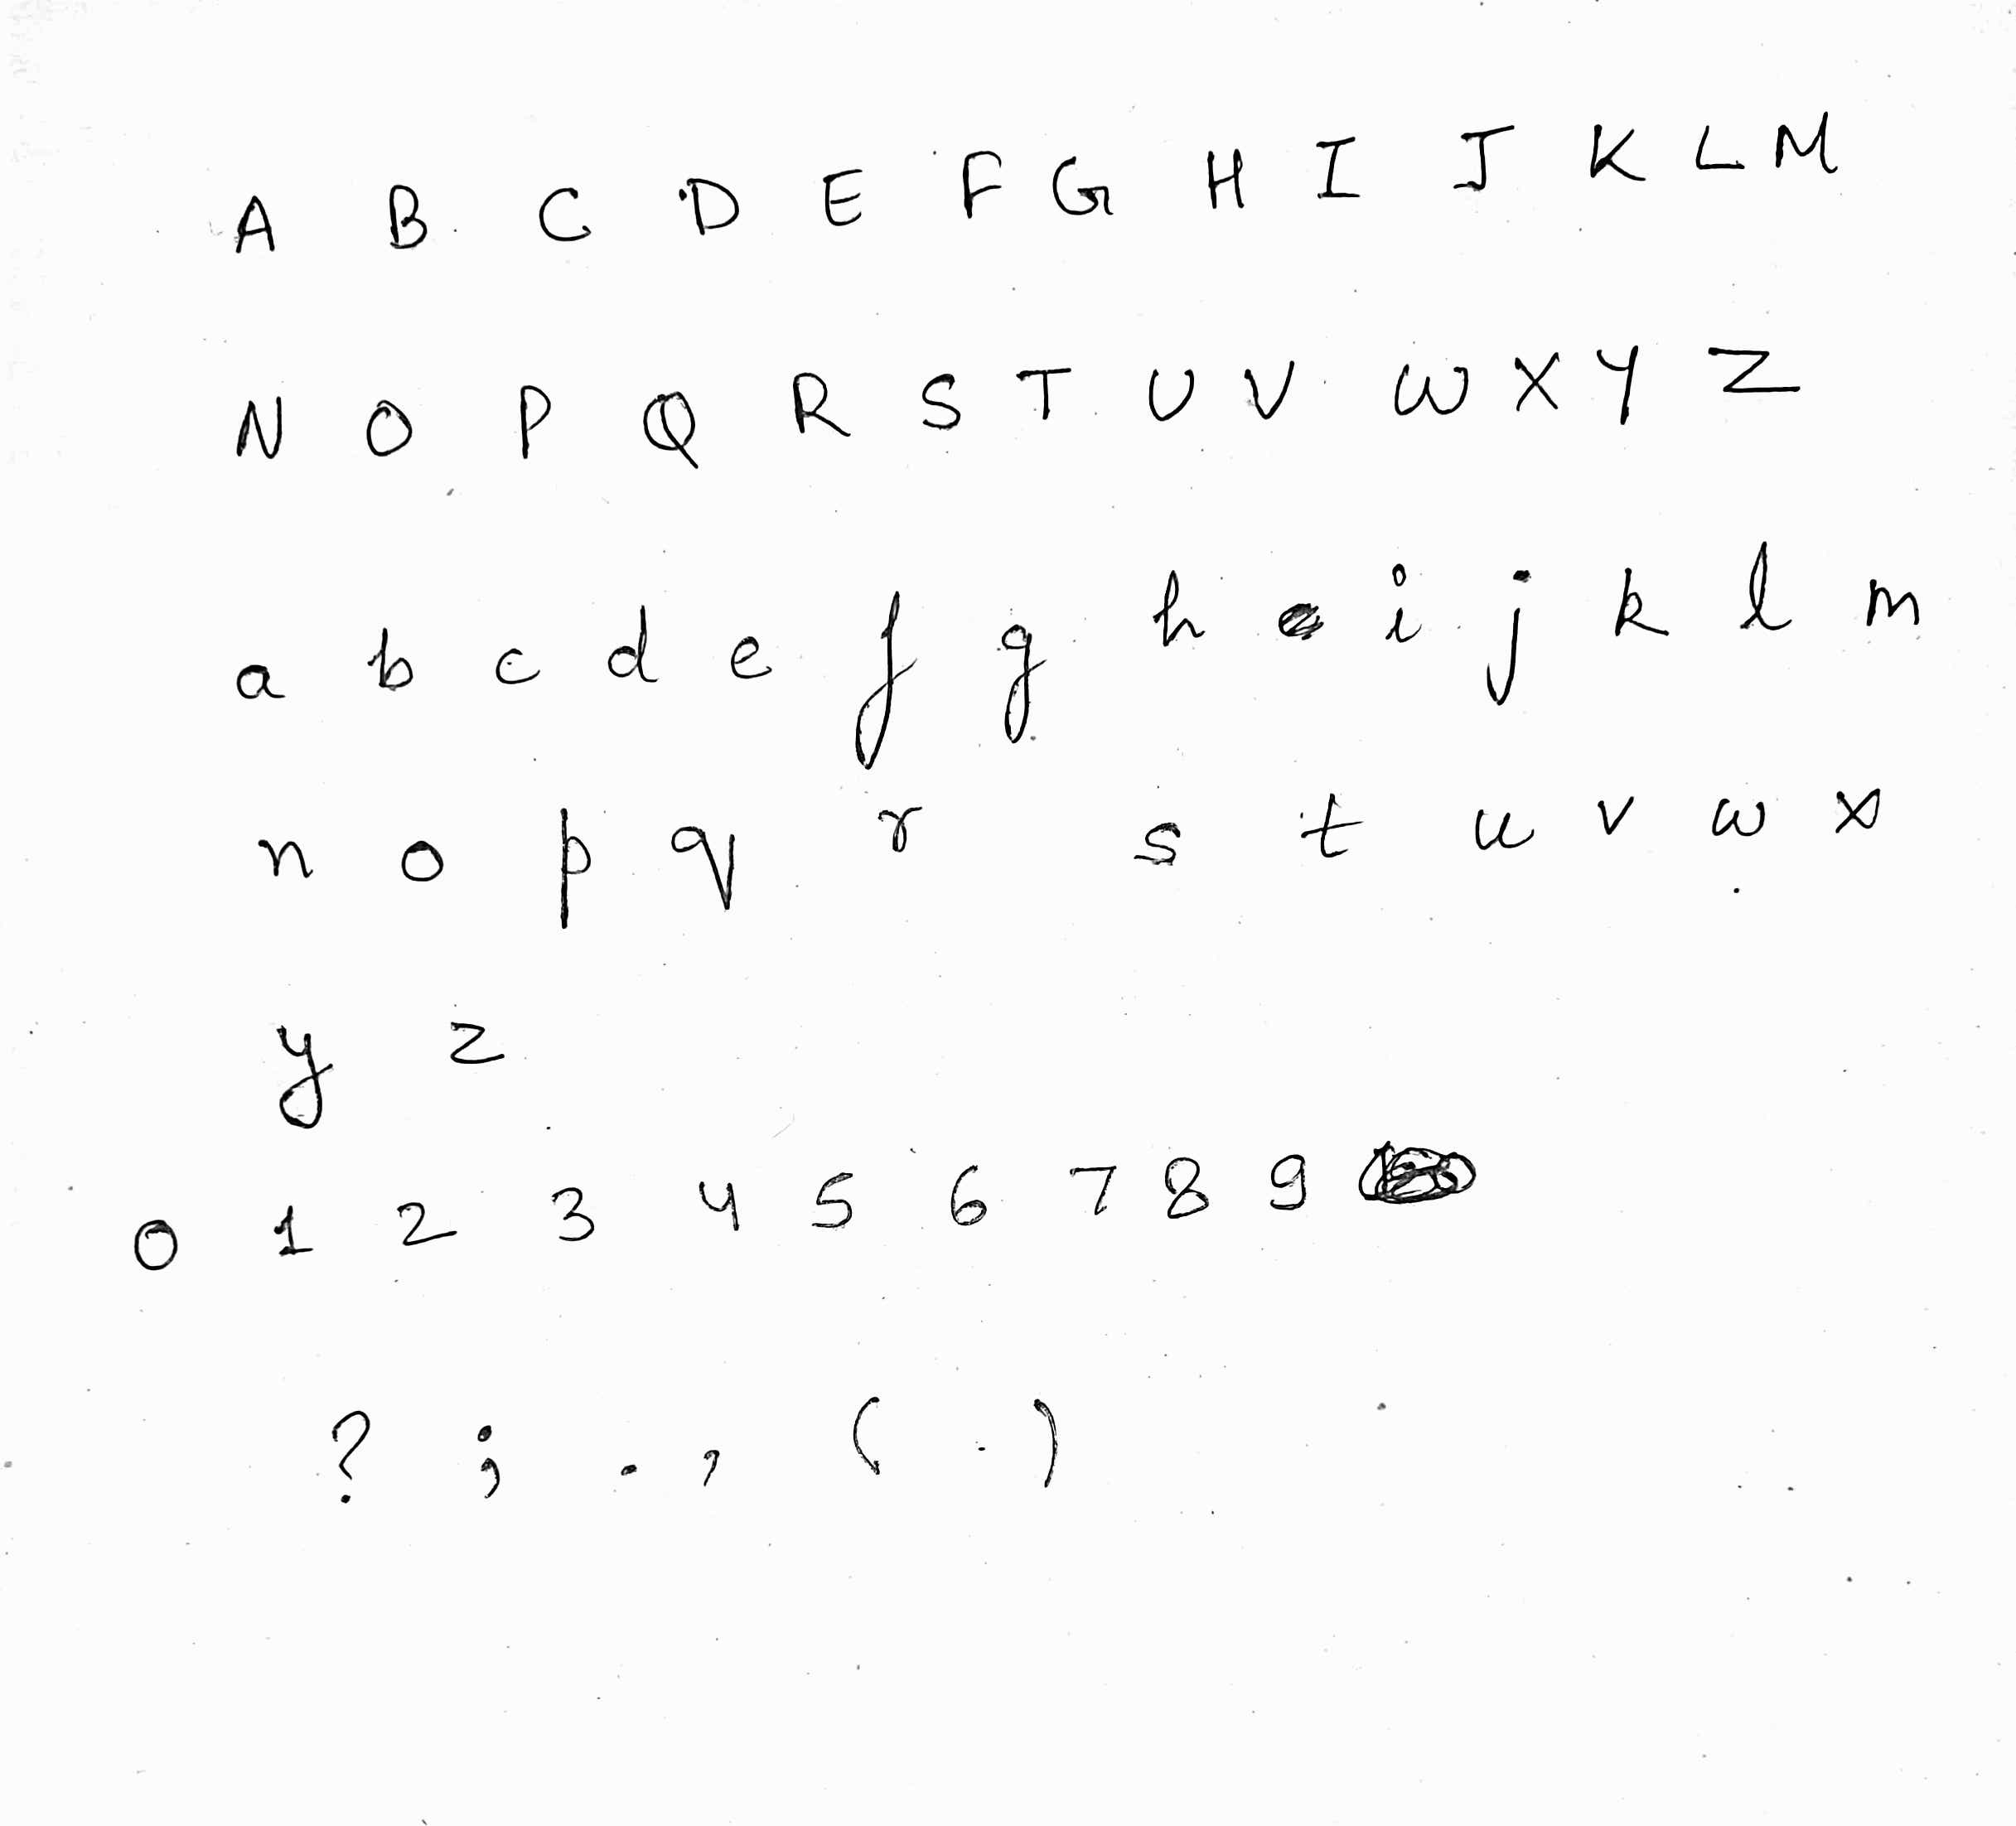 A B C D E F G H I J K L M
N O P Q R S T U V W X Y Z
a b c d e f g h i j k l m
n o p q r s t u v w x
y z
0 1 2 3 4 5 6 7 8 9
? ; . , ( )